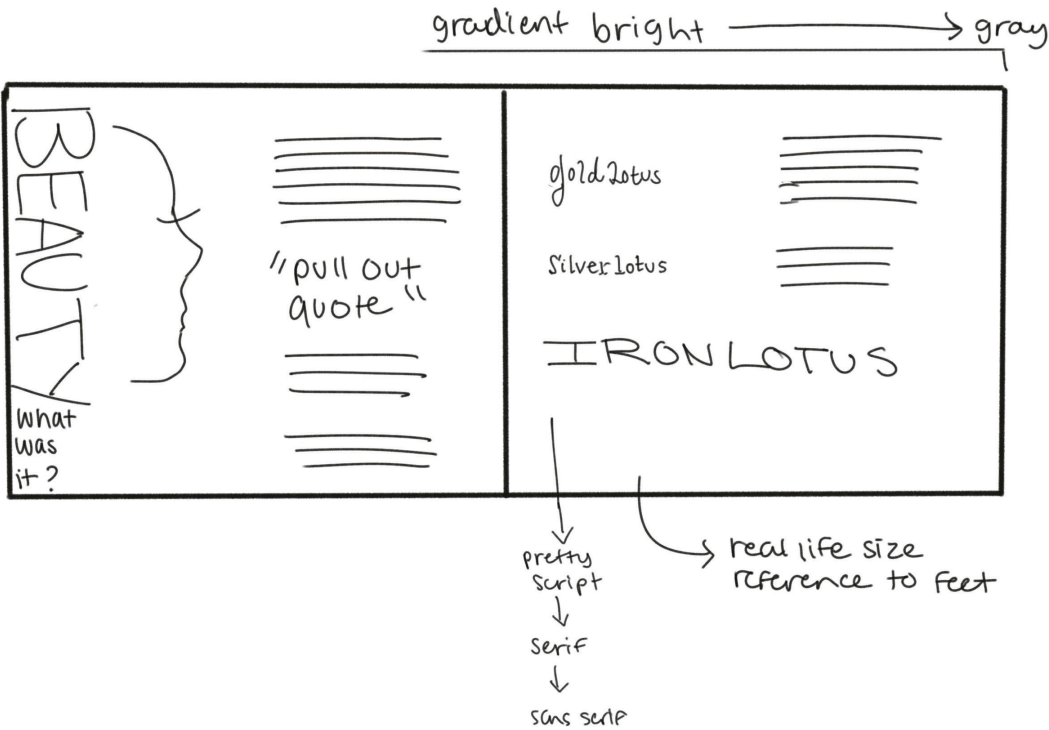 gradient bright → gray
BEAUTY
what
was
it?
"pull out
quote"
gold Lotus
Silver lotus
IRON LOTUS
pretty
script
serif
sans serif
real life size
reference to feet